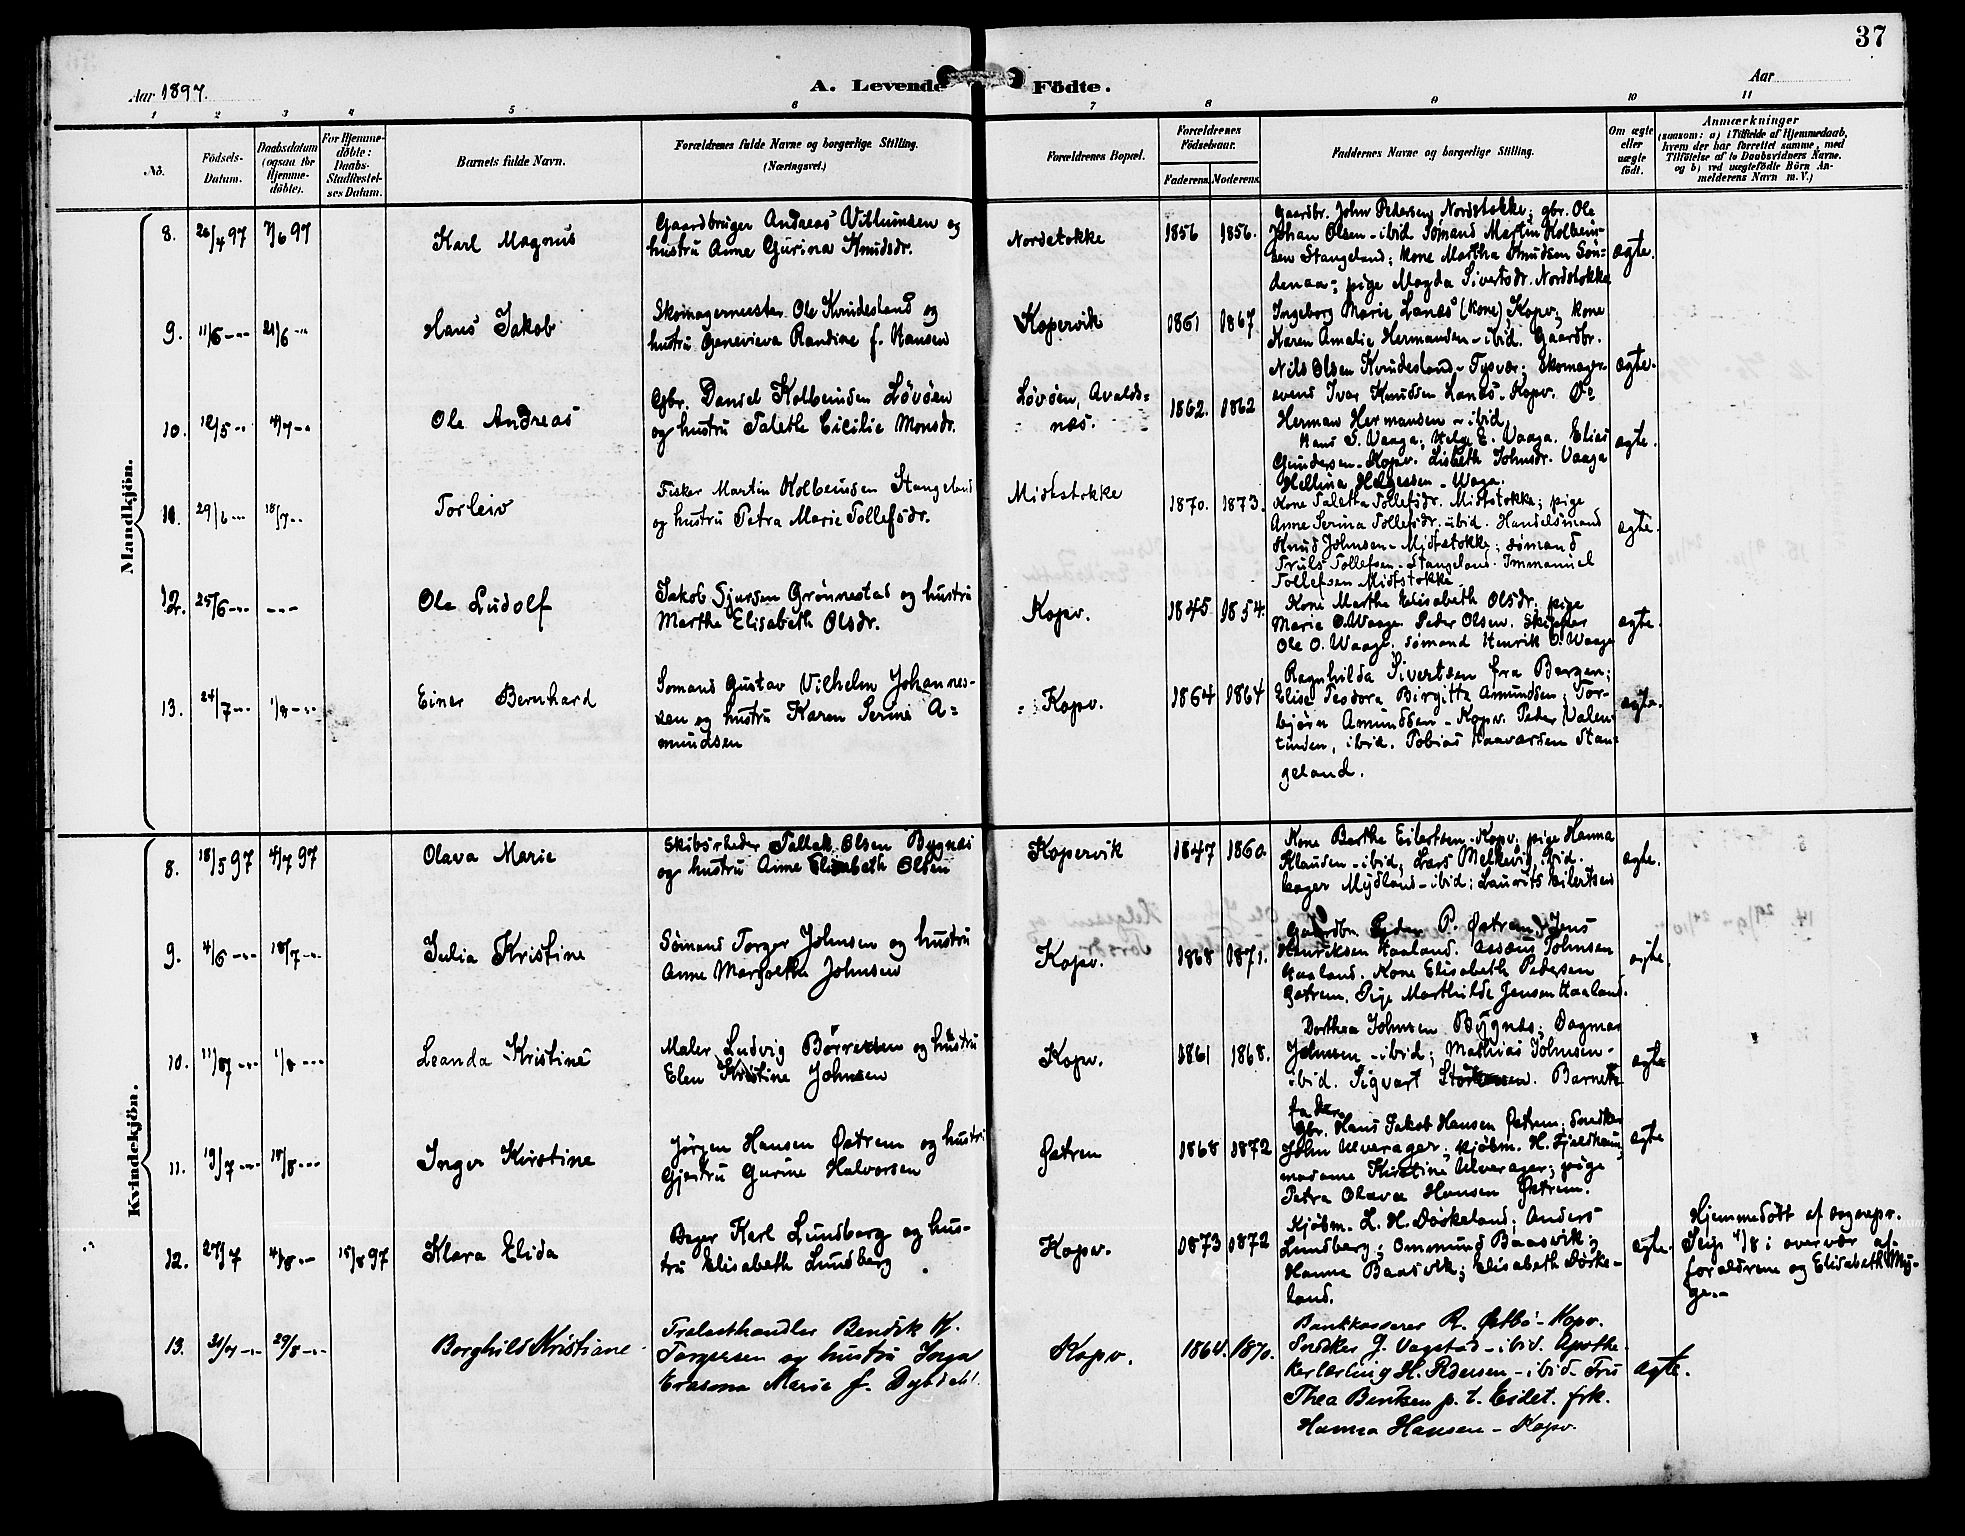 37
Aar 1897.
A. Levende Födte.
Aar
1 2 3 4 5 6 7 8 9 10 11
No.
Födsels-Datum.
Daabsdatum (ogsaa for Hjemme-döbte).
For Hjemme-döbte: Daabs-Stadfæstel-ses Datum.
Barnets fulde Navn.
Forældrenes fulde Navne og borgerlige Stilling.
(Næringsvei.)
Forældrenes Bopæl.
Forældrenes Födselsaar.
Faderens. Moderens.
Faddernes Navne og borgerlige Stilling.
Om ægte eller uægte födt.
Anmærkninger
(saasom: a) i Tilfælde af Hjemmedaab,
hvem der har forrettet samme, med
Tilföielse af to Daabsvidners Navne,
og b) ved uægtefödte Börn An-
melderens Navn m. V.)
Mandkjön.
8. 26/4 97 7/6 97 Karl Magnus
Gaardbruger Andreas Vitlumsen og
hustru Anne Gurina Knudsdr.
Nordstokke 1856 1856.
Gaardbr. John Pedersen Nordstokke; gbr. Ole
Johan Olsen - ibid Sømand Martin Kolbein-
sen Stangeland; kone Martha Knudsen Søn-
denaa; pige Magda Sivertsdr. Nordstokke
ægte.
9. 11/5 --- 21/6 -- Hans Jakob
Skomagermester Ole Kvindesland og
hustru Genevieva Randine f. Hansen
Kopervik 1861 1867
Ingeborg Marie Lanæs (kone) Kopv; kone
Karen Amalie Hermansen - ibid. Gaardbr.
Nils Olsen Kvindesland - Tysvær; Skomager-
svend Ivar Knudsen Lanæs - Kopv. Do
Herman Hermansen - ibid.
ægte.
10. 12/5 -- 4/7 -- Ole Andreas
Gbr. Daniel Kolbeinsen Løvøen
og hustru Talethe Cicilie Monsdr.
Løvøen, Avalds=
næs. 1862. 1862
Hans S. Vaaga; Helge E. Vaaga. Elias
Gundersen - Kopv. Lisbeth Johnsdr. Vaaga
Hellina Helgessen - Waga.
ægte.
11. 29/6 --- 18/7 -- Torleiv
Fisker Martin Kolbeinsen Stangeland
og hustru Petra Marie Tollefsdr.
Midtstokke 1870. 1873.
Kone Taletta Tollefsdr. Midtstokke; pige
Anne Serina Tollefsdr. ibid. Handelsmand
Knud Johnsen - Midtstokke; sømand
Truls Tollefsen - Stangeland. Immanuel
Tollefsen Midtstokke.
ægte.
12. 25/6 --- --- Ole Ludolf
Jakob Sjursen Grønnestad og hustru
Marthe Elisabeth Olsdr.
Kopv. 1845 1854.
Kone Marthe Elisabeth Olsdr. pige
Marie O. Waage Peder Olsen. Skipper
Ole O. Waage, sømand Henrik O. Waage
ægte.
13. 24/7 --- 1/8 --- Einer Bernhard
Sømand Gustav Vilhelm Johannes-
sen og hustru Karen Serine A=
mundsen
Kopv. 1864 1864
Ragnhilda Sivertsen fra Bergen;
Elise Teodora Birgitte Amundsen; Tor-
bjørn Amundsen - Kopv. Peder Valen-
tinsen, ibid. Tobias Haavardsen Stan=
geland.
ægte.
Kvindekjön.
8. 18/5 97 4/7 97 Olava Marie
Skibsrheder Tallak Olsen Bygnæs
og hustru Anne Elisabeth Olsen
Kopervik 1847 1860
Kone Berthe Eilertsen - Kopv; pige Hanna
Klausen - ibid; Lars Melkevig ibid.
bager Mydland - ibid; Laurits Eilertsen
ægte.
9. 4/6 --- 18/7 --- Julia Kristine
Sømand Torger Johnsen og hustru
Anne Margrethe Johnsen
Kopv. 1868 1871.
Gaardbr. Peder P. Østrem, Jens
Henriksen Haaland. Johnsen
Haaland. Kone Elisabeth Pedersen
Østrem. Pige Marthilde Jensen Haaland.
ægte.
10. 11/7 --- 1/8 --- Leanda Kristine
Maler Ludvig Børresen og hustru
Elen Kristine Johnsen
Kopv. 1861 1868.
Dorthea Johnsen Bygnes; Dagmar
Johnsen - ibid; Mathias Johnsen -
ibid. Sigvart. Barnets
fader
ægte
11. 19/7 --- 18/8 --- Inger Kirstine
Jørgen Hansen Østrem og hustru
Gjertru Gurine Halvorsen
Østrem 1868 1872
Gbr. Hans Jakob Hansen Østrem; Snedker
John Ulverager; kjøbm. H. Fjeldheim;
madame Kirstine Ulverager; pige
Petra Olava Hansen Østrem.
ægte
12. 27/7 4/8 -- 15/8 97 Klara Elida
Bager Karl Lundberg og hus-
tru Elisabeth Lundberg
Kopv. 1873 1872
Kjøbm. L. H. Døskeland; Anders
Lundberg; Ommund Baasvik;
Hanne Baasvik; Elisabeth Døske-
land.
ægte.
Hjemmedøbt af sognepr.
Seip 4/8 i overvær af
forældrene og Elisabeth My-
ge.-
13. 31/7 --- 29/8 --- Borghild Kristiane
Trælasthandler Bendik K.
Torgersen og hustru Inga
Erasma Marie f. Dybdahl
Kopv. 1864. 1870.
Bankkasserer R. Østbø - Kopv.
Snedker G. Vagstad - ibid. Apothe-
kerlærling H. - ibid. Fru
Thea Bentsen p. t. Eidet. frk.
Hanna Hansen - Kopv.
ægte.